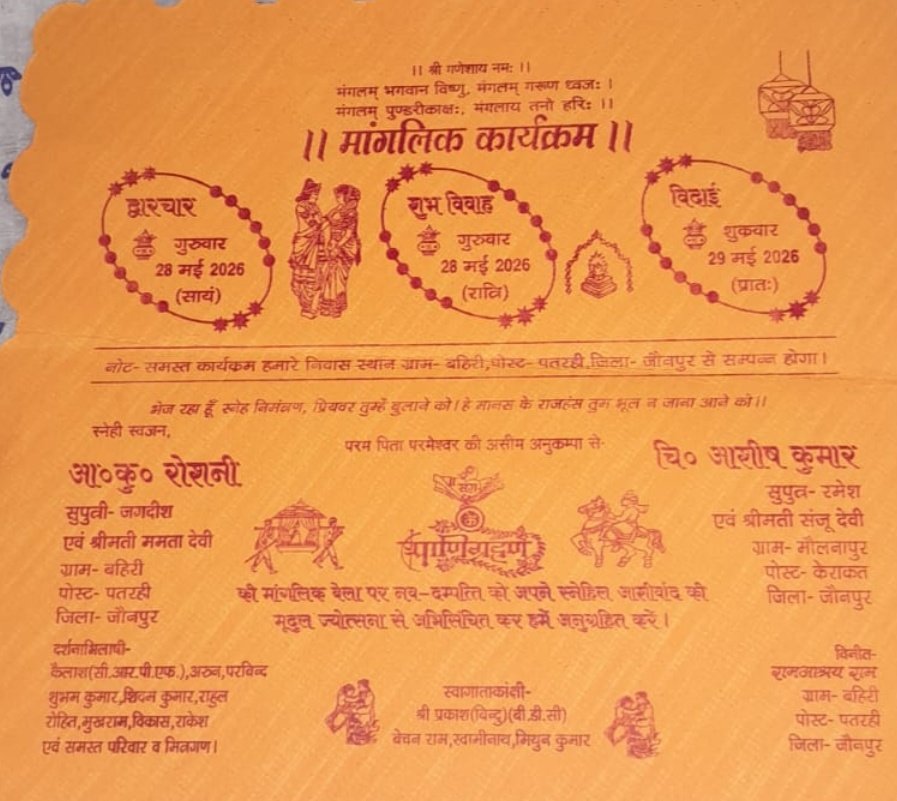 ।। श्री गणेशाय नमः ।।
मंगलम् भगवान विष्णु, मंगलम् गरूण ध्वजः ।
मंगलम् पुण्डरीकाक्षः, मंगलाय तनो हरिः ।।
।। मांगलिक कार्यक्रम ।।
द्वारचार
गुरुवार
28 मई 2026
(सायं)
शुभ विवाह
गुरुवार
28 मई 2026
(रात्रि)
विदाई
शुक्रवार
29 मई 2026
(प्रातः)
नोट- समस्त कार्यक्रम हमारे निवास स्थान ग्राम- बहिरी,पोस्ट- पतरही,जिला- जौनपुर से सम्पन्न होगा।
भेज रहा हूँ स्नेह निमंत्रण, प्रियवर तुम्हें बुलाने को। हे मानस के राजहंस तुम भूल न जाना आने को।।
स्नेही स्वजन,
परम पिता परमेश्वर की असीम अनुकम्पा से-
आ०कु० रोशनी
सुपुत्री- जगदीश
एवं श्रीमती ममता देवी
ग्राम- बहिरी
पोस्ट- पतरही
जिला- जौनपुर
संग
पाणिग्रहण
चि० आशीष कुमार
सुपुत्र- रमेश
एवं श्रीमती संजू देवी
ग्राम- मौलनापुर
पोस्ट- केराकत
जिला- जौनपुर
की मांगलिक बेला पर नव-दम्पत्ति को अपने स्नेहिल आर्शीवाद की
मृदुल ज्योत्सना से अभिसिंचित कर हमें अनुग्रहित करें।
दर्शनाभिलाषी-
कैलाश(सी.आर.पी.एफ.),अरुन,परविन्द
शुभम कुमार,शिवम कुमार,राहुल
रोहित,मुखराम,विकास,राकेश
एवं समस्त परिवार व मित्रगण।
स्वागाताकांक्षी-
श्री प्रकाश(विन्दु)(बी.डी.सी)
बेचन राम,स्वामीनाथ,मिथुन कुमार
विनीत-
रामआश्रय राम
ग्राम- बहिरी
पोस्ट- पतरही
जिला- जौनपुर